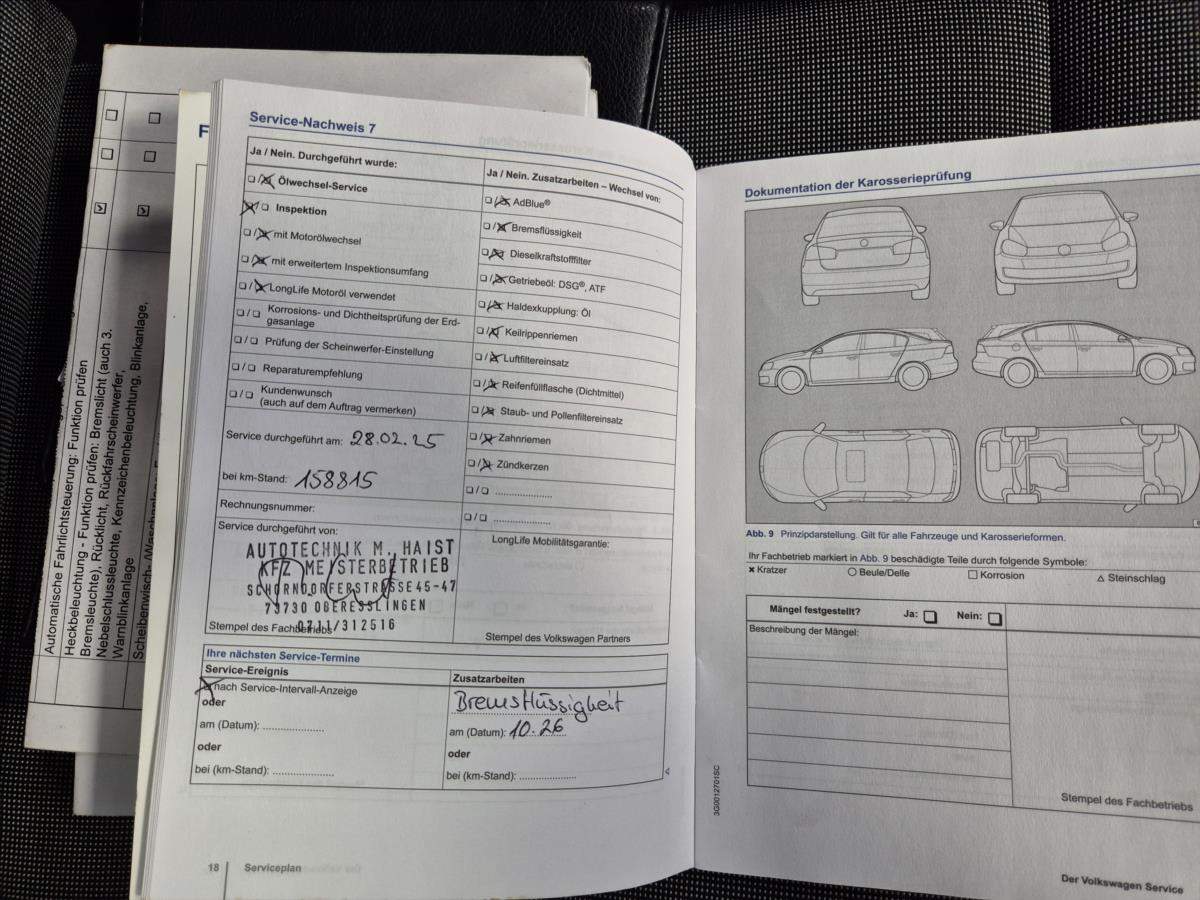 Automatische Fahrlichtsteuerung: Funktion prüfen
Heckbeleuchtung - Funktion prüfen: Bremslicht (auch 3.
Bremsleuchte), Rücklicht, Rückfahrscheinwerfer,
Nebelschlussleuchte, Kennzeichenbeleuchtung, Blinkanlage,
Warnblinkanlage
F
Service-Nachweis 7
Ja / Nein. Durchgeführt wurde:
Ölwechsel-Service
Inspektion
mit Motorölwechsel
mit erweitertem Inspektionsumfang
LongLife Motoröl verwendet
Korrosions- und Dichtheitsprüfung der Erd-
gasanlage
Prüfung der Scheinwerfer-Einstellung
Reparaturempfehlung
Kundenwunsch
(auch auf dem Auftrag vermerken)
Service durchgeführt am: 28.02.25
bei km-Stand: 158815
Rechnungsnummer:
Service durchgeführt von:
AUTOTECHNIK M. HAIST
KFZ MEISTERBETRIEB
SCHORNDORFERSTRASSE 45-47
73730 OBERESSLINGEN
0711/312516
Stempel des Fachbetriebs
Ja / Nein. Zusatzarbeiten – Wechsel von:
AdBlue®
Bremsflüssigkeit
Dieselkraftstofffilter
Getriebeöl: DSG®, ATF
Haldexkupplung: Öl
Keilrippenriemen
Luftfiltereinsatz
Reifenfüllflasche (Dichtmittel)
Staub- und Pollenfiltereinsatz
Zahnriemen
Zündkerzen
LongLife Mobilitätsgarantie:
Stempel des Volkswagen Partners
Ihre nächsten Service-Termine
Service-Ereignis
nach Service-Intervall-Anzeige
oder
am (Datum): ....................
oder
bei (km-Stand): ....................
Zusatzarbeiten
Bremsflüssigkeit
am (Datum): 10.26
oder
bei (km-Stand): ..................
18 Serviceplan
Dokumentation der Karosserieprüfung
Abb. 9 Prinzipdarstellung. Gilt für alle Fahrzeuge und Karosserieformen.
Ihr Fachbetrieb markiert in Abb. 9 beschädigte Teile durch folgende Symbole:
Kratzer Beule/Delle Korrosion Steinschlag
Mängel festgestellt? Ja: Nein:
Beschreibung der Mängel:
Stempel des Fachbetriebs
3G0012701SC
Der Volkswagen Service